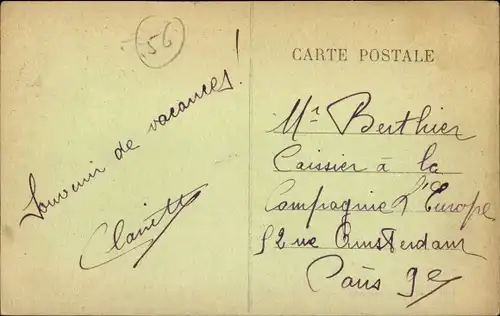 56
CARTE POSTALE
Souvenir de vacances!
Mr Berthier
Caissier à la
Compagnie L'Europe
rue Amsterdam
Paris 9e